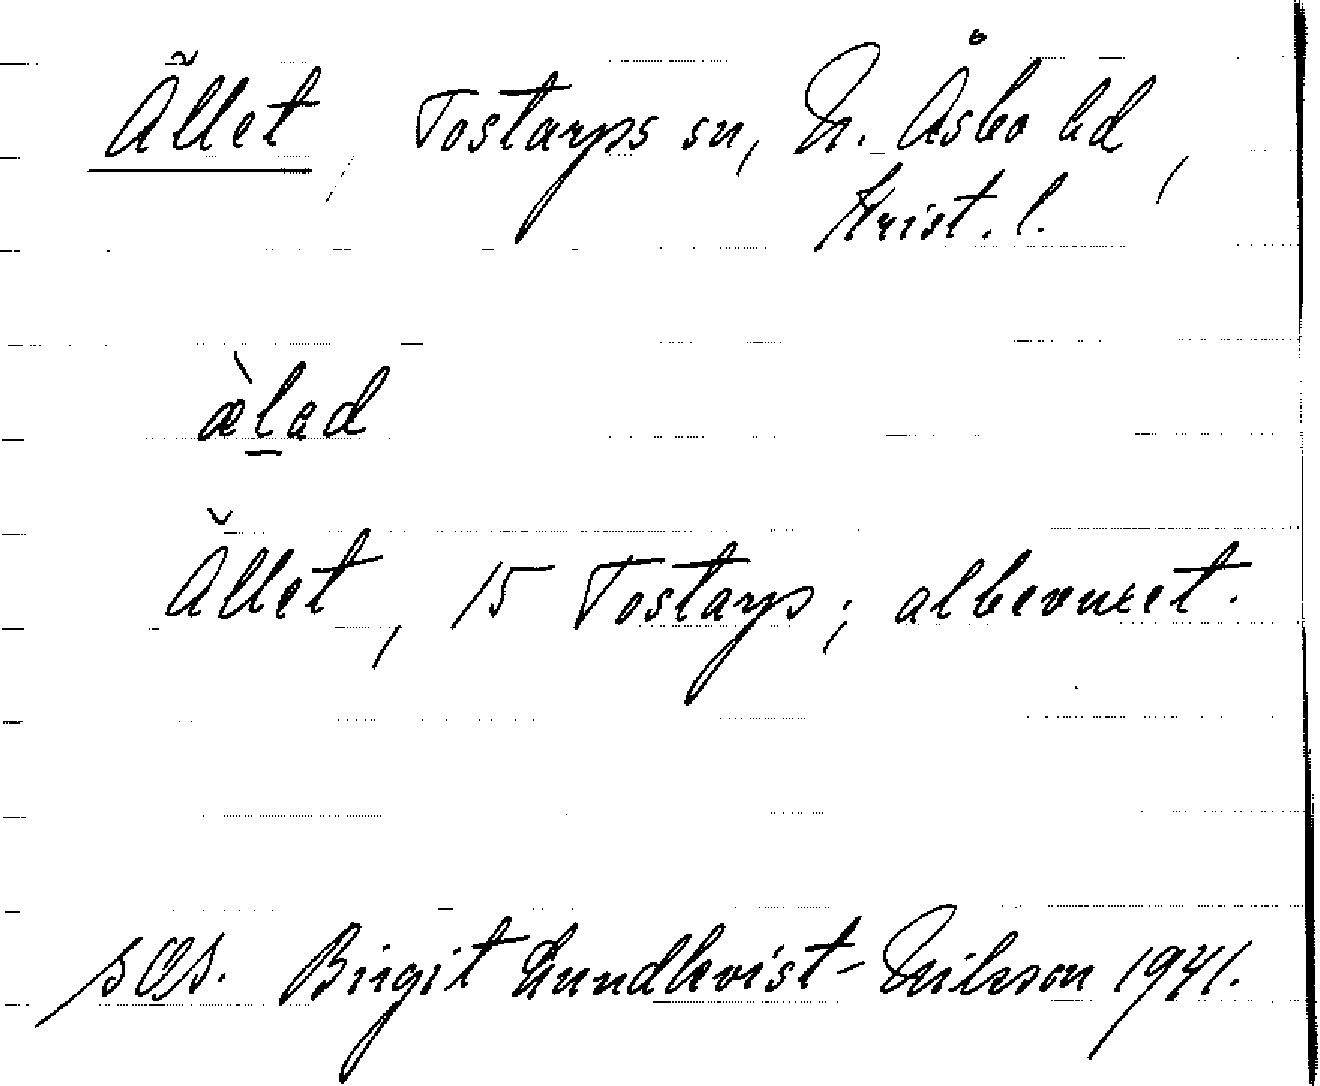 Ället, Tostarps sn, N. Åsbo hd,
Krist. l.
æ̀l̠ad
Ället, 15 Tostarp; albevuxet.
s. Birgit Lundkvist-Nilsson 1941.